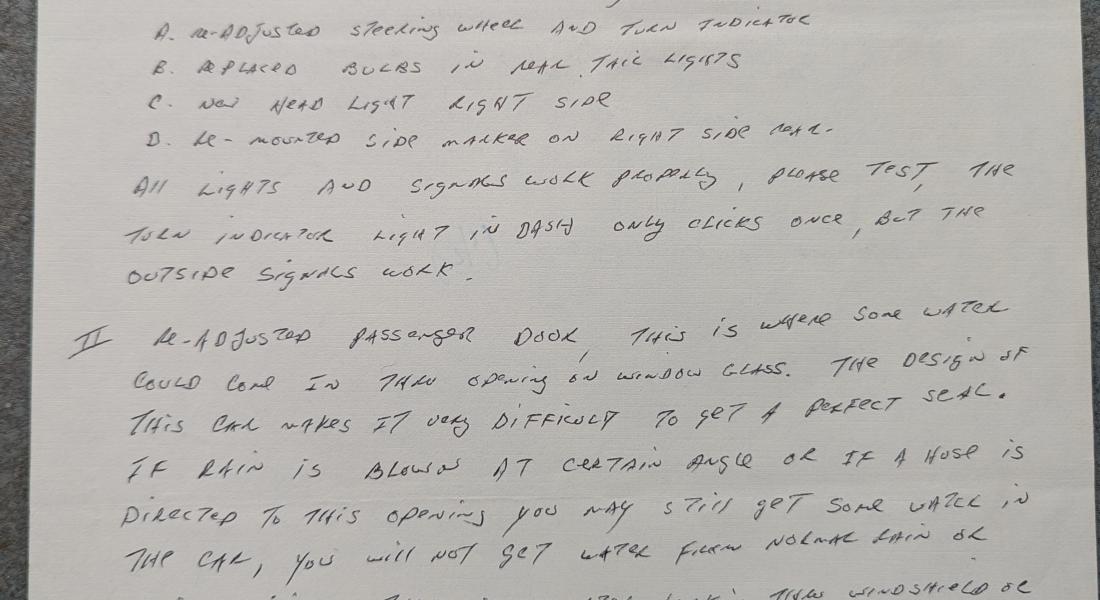 A. Re-ADJUSTED STEERING WHEEL AND TURN INDICATOR
B. REPLACED BULBS IN REAR TAIL LIGHTS
C. NEW HEAD LIGHT RIGHT SIDE
D. Re-MOUNTED SIDE MARKER ON RIGHT SIDE REAR.
All LIGHTS AND SIGNALS WORK PROPERLY, PLEASE TEST, THE
TURN INDICATOR LIGHT IN DASH ONLY CLICKS ONCE, BUT THE
OUTSIDE SIGNALS WORK.
II Re-ADJUSTED PASSENGER DOOR, THIS IS WHERE SOME WATER
COULD COME IN THRU OPENING ON WINDOW GLASS. THE DESIGN OF
THIS CAR MAKES IT VERY DIFFICULT TO GET A PERFECT SEAL.
IF RAIN IS BLOWN AT CERTAIN ANGLE OR IF A HOSE IS
DIRECTED TO THIS OPENING YOU MAY STILL GET SOME WATER IN
THE CAR, YOU WILL NOT GET WATER FROM NORMAL RAIN OR
THRU WINDSHIELD OR